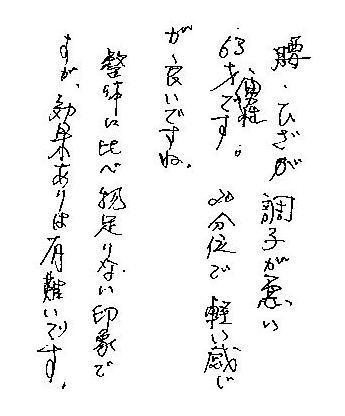 腰・ひざが調子が悪い
63才です。20分位で軽い感じ
が良いですね。
整体に比べ物足りない印象で
すが、効果ありは有難いです。